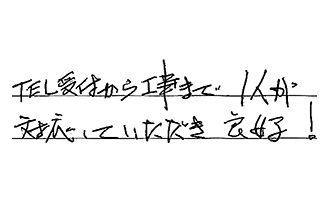 TEL受付から工事まで 1人が
対応していただき 良好！